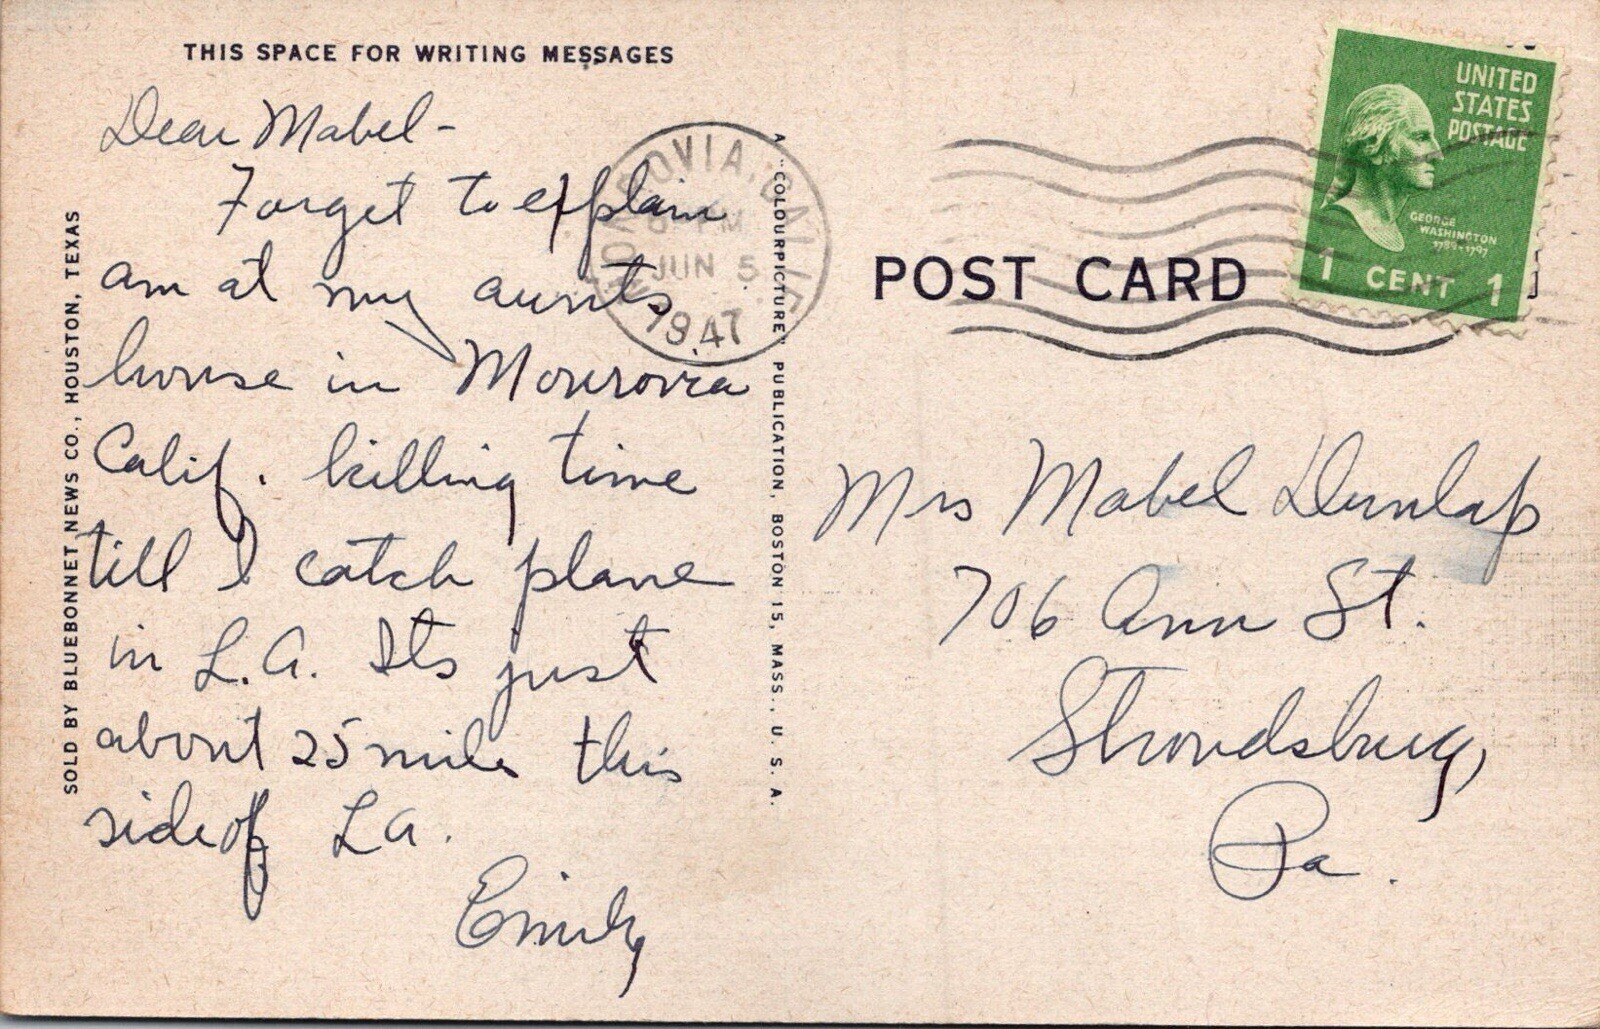 THIS SPACE FOR WRITING MESSAGES
Dear Mabel-
Forget to explain
am at my aunts
house in Monrovia
Calif. killing time
till I catch plane
in L.A. Its just
about 25 miles this
side of LA.
Emily
SOLD BY BLUEBONNET NEWS CO., HOUSTON, TEXAS
A "COLOURPICTURE" PUBLICATION, BOSTON 15, MASS., U. S. A.
MONROVIA, CALIF.
PM
JUN 5
1947
POST CARD
UNITED
STATES
POSTAGE
GEORGE
WASHINGTON
1789-1797
1 CENT 1
Mrs Mabel Dunlap
706 Ann St.
Stroudsburg,
Pa.